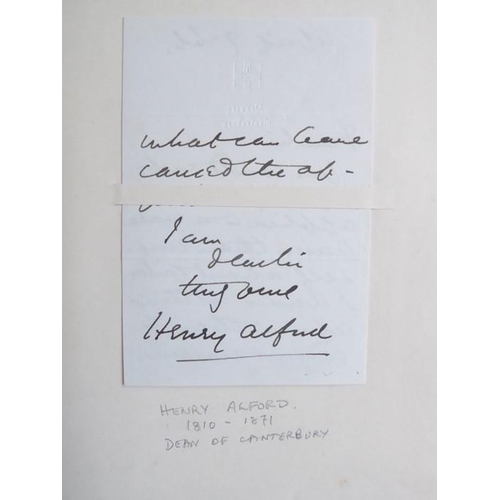 what can have
caused the af-
I am
truly
Henry Alford
HENRY ALFORD.
1810 - 1871
DEAN OF CANTERBURY